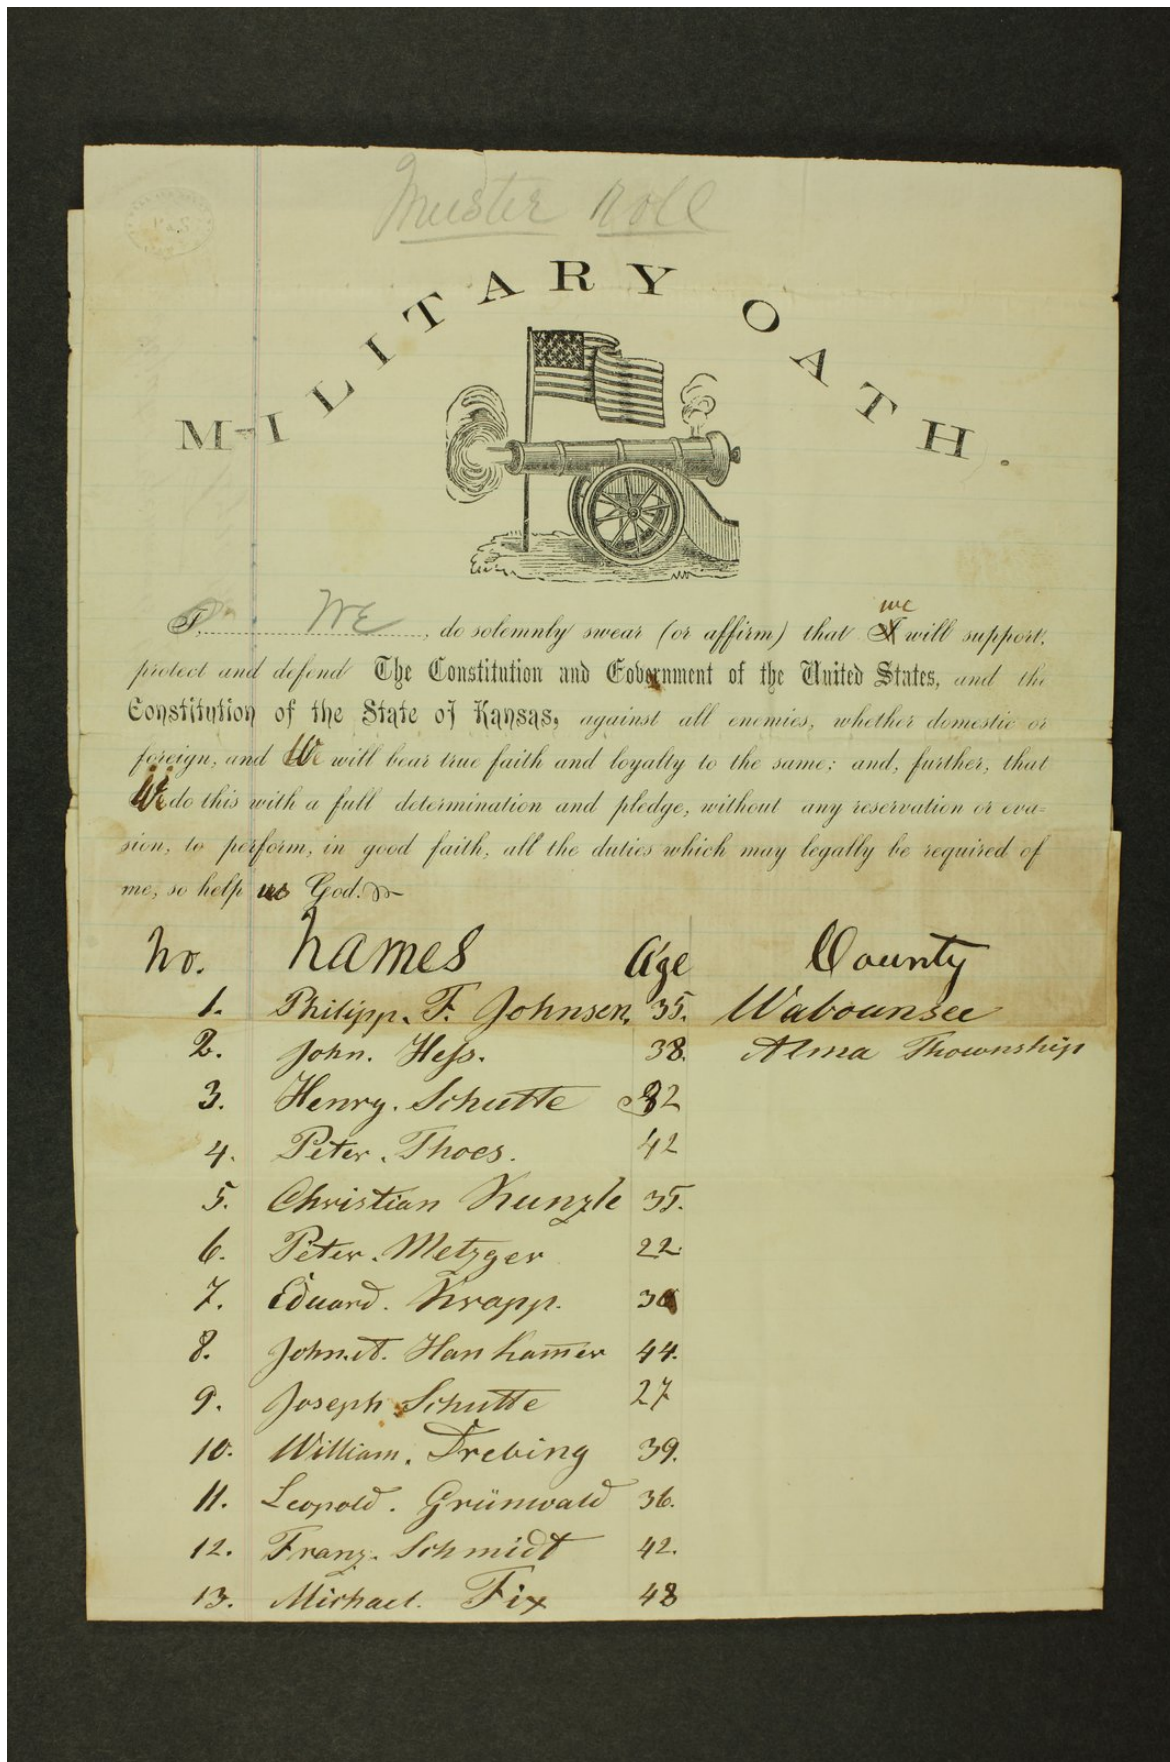 Muster Roll
MILITARY OATH.
I, We, do solemnly swear (or affirm) that I we will support,
protect and defend The Constitution and Government of the United States, and the
Constitution of the State of Kansas, against all enemies, whether domestic or
foreign, and We will bear true faith and loyalty to the same; and, further, that
We do this with a full determination and pledge, without any reservation or eva-
sion, to perform, in good faith, all the duties which may legally be required of
me, so help us God.
No. Names Age County
1. Philipp. F. Johnsen. 35. Wabounsee
2. John. Hess. 38. Alma Thownship
3. Henry. Schutte 32
4. Peter. Thoes. 42
5. Christian Kunzle 35.
6. Peter. Metzger 22.
7. Eduard. Krapp. 30
8. John. A. Hankamer 44.
9. Joseph Schutte 27
10. William. Drebing 39.
11. Leopold. Grünwald 36.
12. Franz. Schmidt 42.
13. Michael. Fix 48